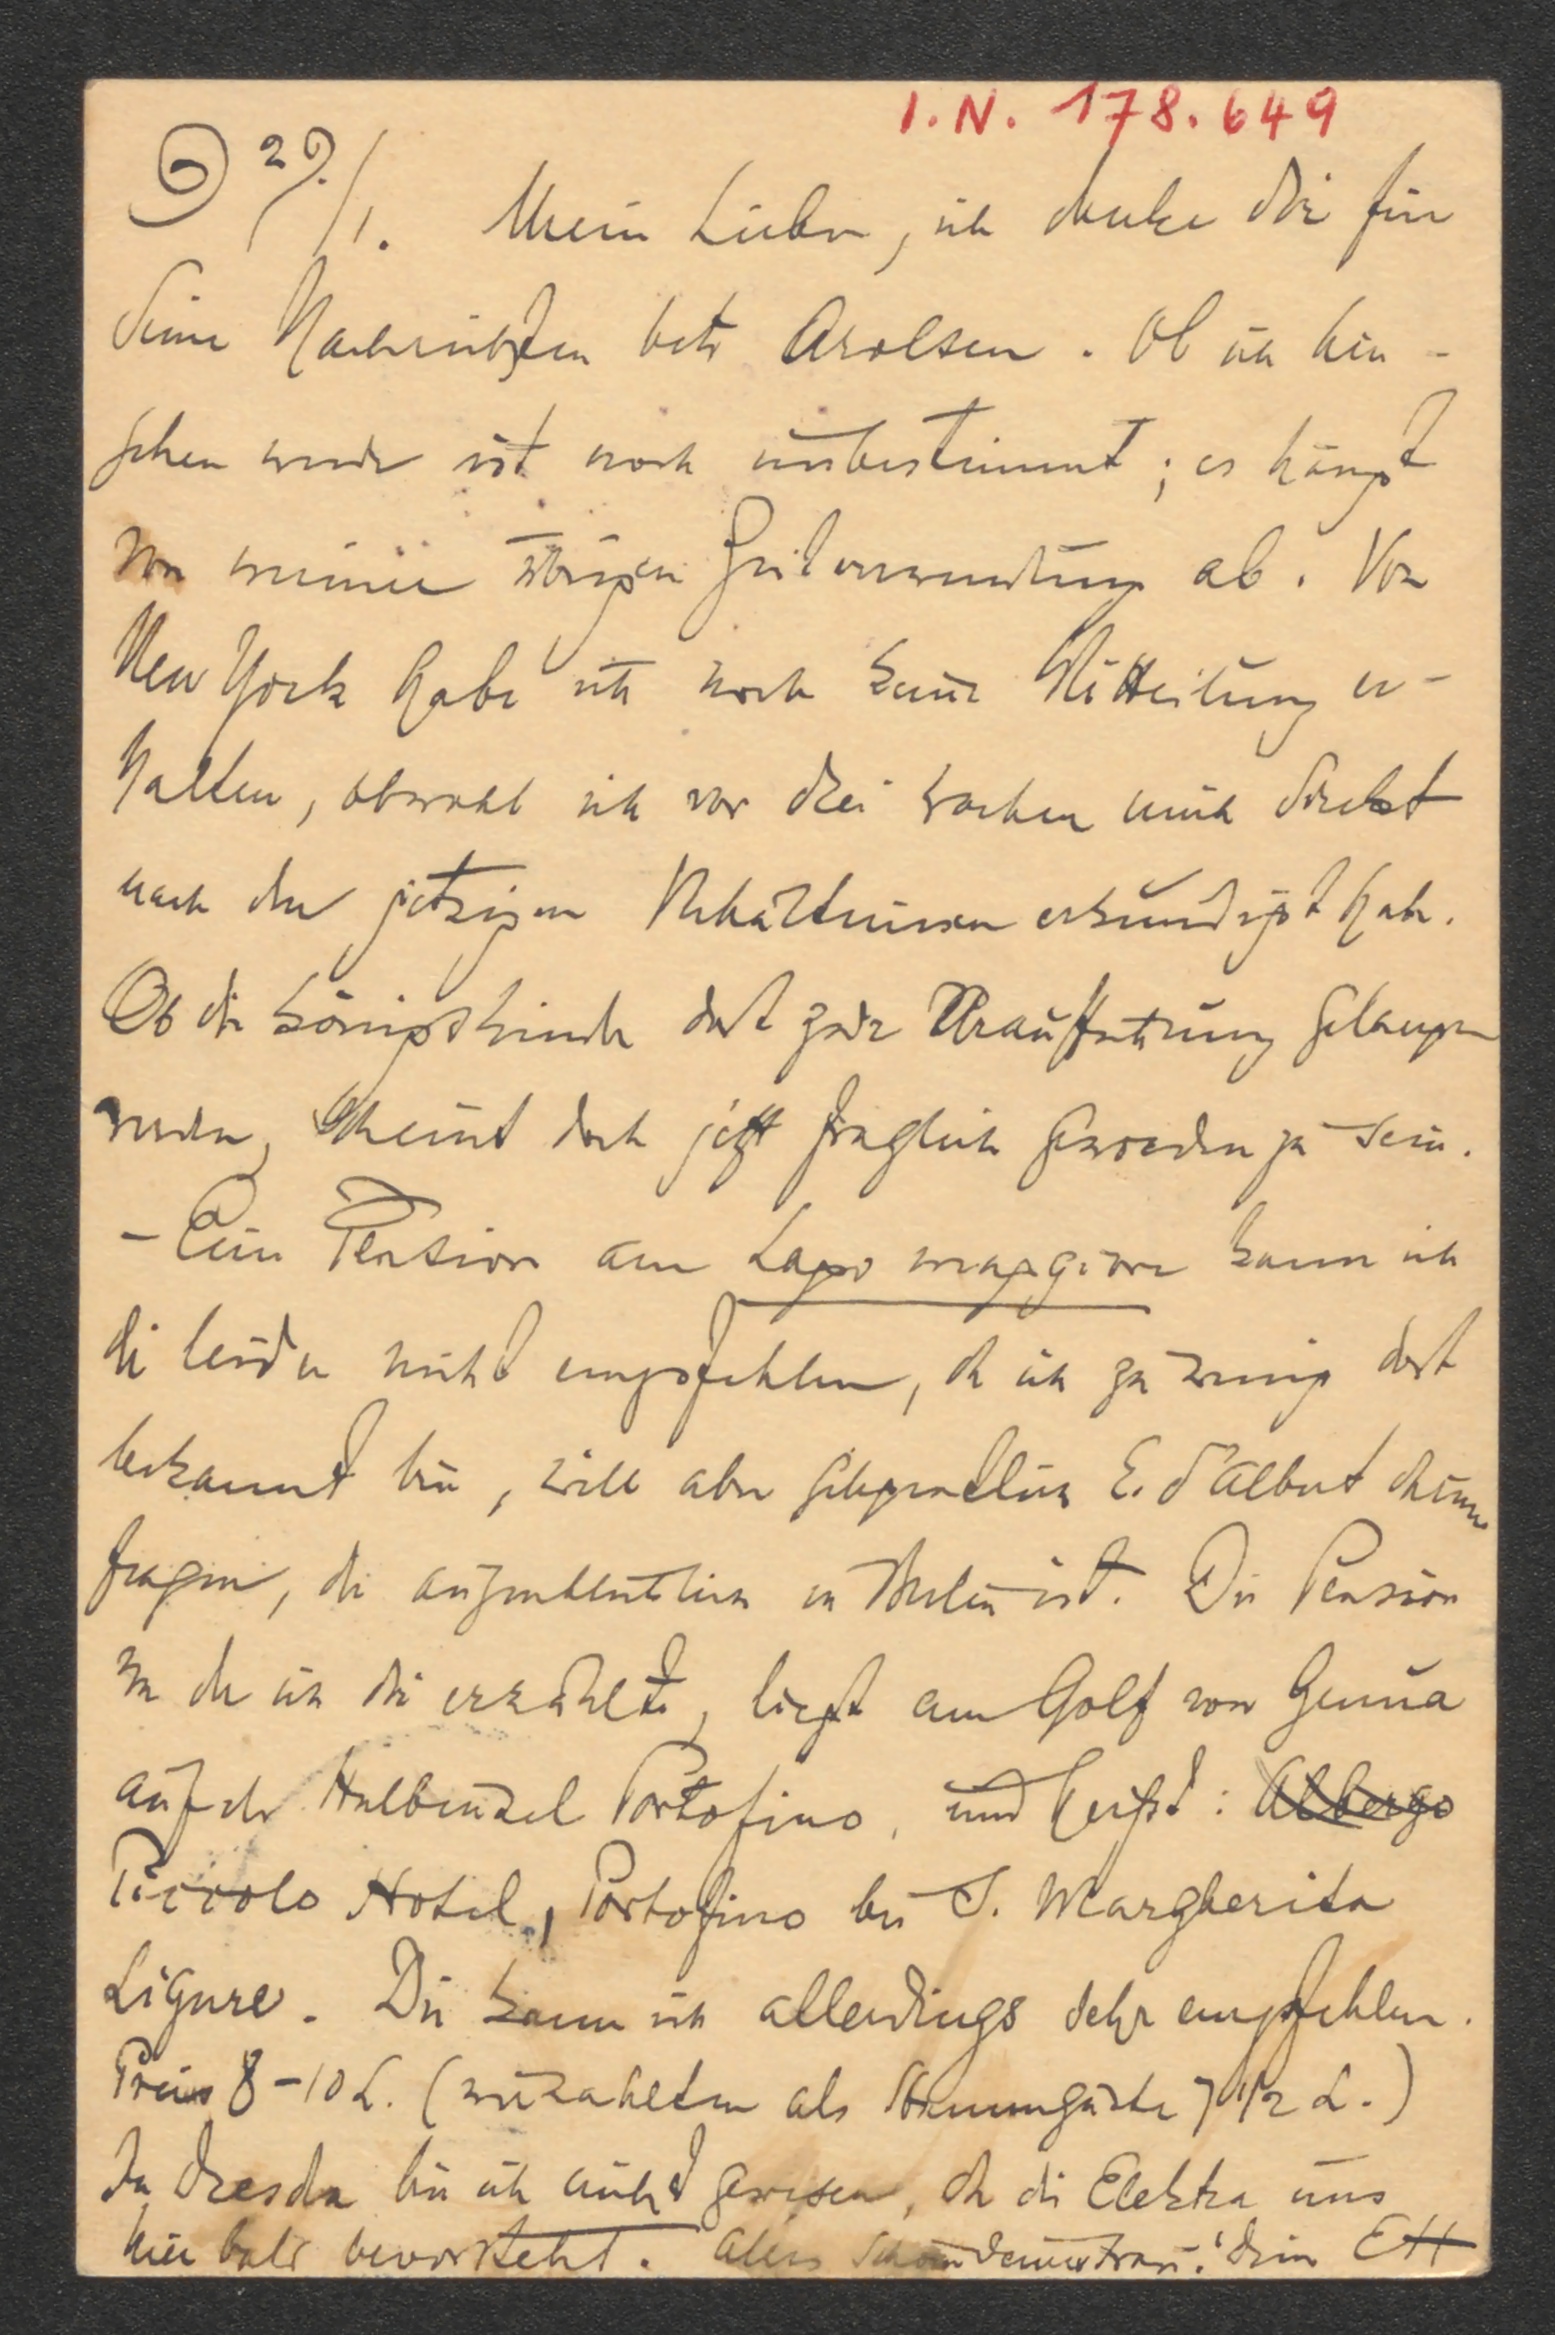 I.N. 178.649
29./1. Mein Lieber, ich danke dir für
deine Nachrichten betr Arolsen. Ob ich hin-
gehen werde ist noch unbestimmt; es hängt
von meiner übrigen Zeitverwendung ab. Von
New York habe ich noch keine Mitteilung er-
halten, obwohl ich vor drei Wochen mich direkt
nach den jetzigen Verhältnissen erkundigt habe.
Ob die Königskinder dort zur Uraufführung gelangen
werden, scheint doch jetzt fraglich geworden zu sein.
- Eine Pension am Lago maggiore kann ich
dir leider nicht empfehlen, da ich zu wenig dort
bekannt bin, will aber gelegentlich E. d'Albert darum
fragen, der augenblicklich in Berlin ist. Die Pension
von der ich dir erzählte, liegt am Golf von Genua
auf der Halbinsel Portofino, und heißt: Albergo
Piccolo Hotel, Portofino bei S. Margherita
Ligure. Die kann ich allerdings sehr empfehlen.
Preis 8-10 L. (wir zahlten als Stammgäste 7 1/2 L.)
In Dresden bin ich nicht gewesen, da die Elektra uns
hier bald bevorsteht. Alles Schöne deiner Frau! Dein EH